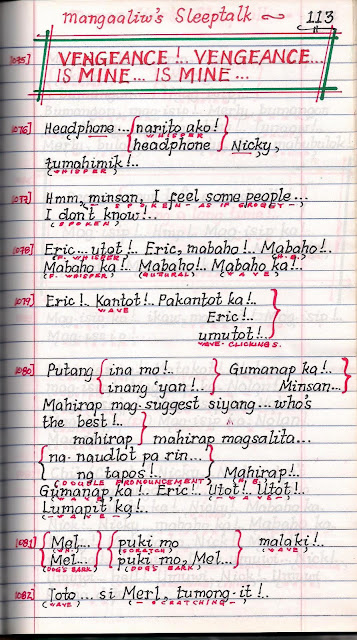 mangaaliw's Sleeptalk 113
1075] VENGEANCE !.. VENGEANCE...
IS MINE... IS MINE...
1076] Headphone... { narito ako!
WHISPER
headphone } Nicky,
tumahimik!..
(WHISPER)
1077] Hmm, minsan, I feel some people...
SPOKEN - AS IF GROGGY -
I don't know!..
(SPOKEN)
1078] Eric... utot!.. Eric, mabaho!.. Mabaho!..
(F. WHISPER) (H.B.)
Mabaho ka!.. Mabaho!.. Mabaho ka!..
(F. WHISPER) (GUTURAL) (WAVE)
1079] Eric!.. Kantot!.. Pakantot ka!..
WAVE
Eric!..
umutot!..
WAVE-CLICKINGS.
1080] Putang { ina mo!.. Gumanap ka!..
inang 'yan!.. } Minsan...
Mahirap mag-suggest siyang... who's
the best!..
mahirap } mahirap magsalita...
{ na-naudlot pa rin...
na tapos!.. } Mahirap!..
(DOUBLE PRONOUNCEMENT) H.B.
Gumanap ka!.. Eric!.. Utot!.. Utot!..
- WAVE -
Lumapit ka!..
(- WAVE -)
1081] { Mel... { puki mo malaki!..
(SCRATCH) (WAVE)
Mel... puki mo, Mel...
(DOG'S BARK) (DOG'S BARK)
1082] Toto... si Merl, tumong-it!..
(WAVE) (- SCRATCHING -)